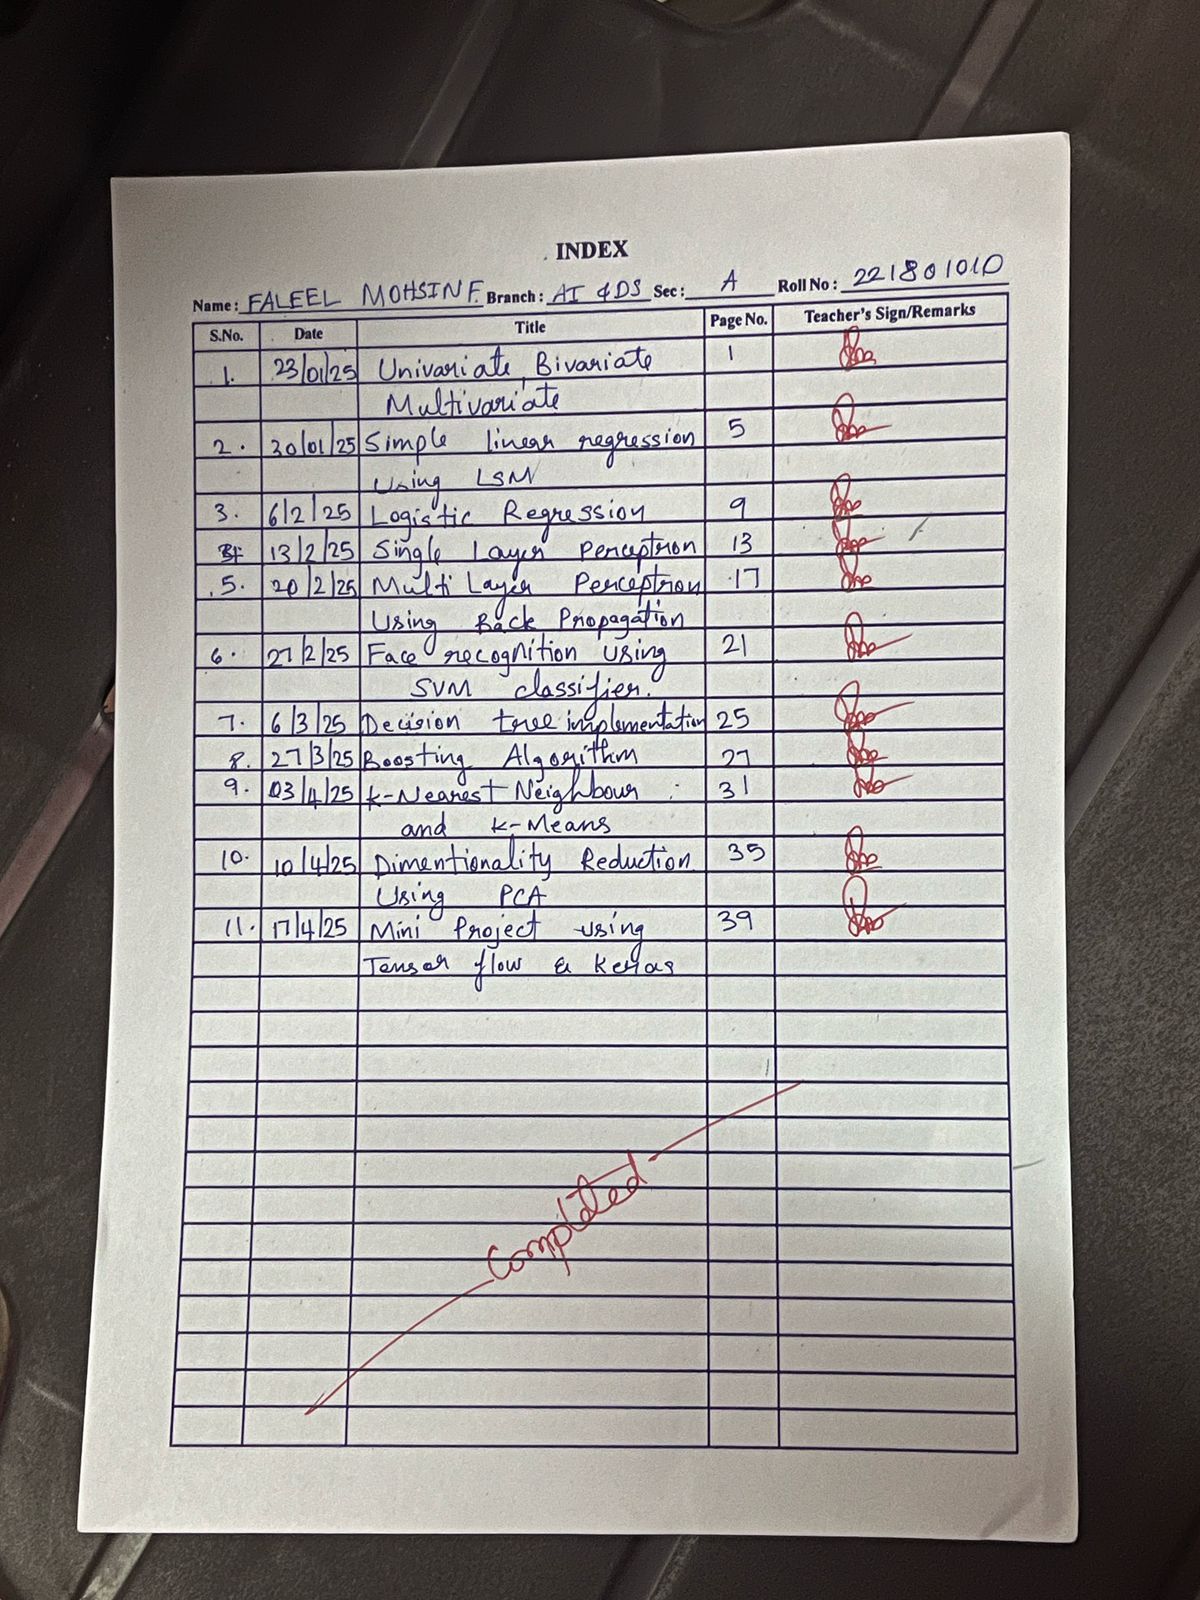 INDEX
Name: FALEEL MOHSIN F. Branch: AI & DS Sec: A Roll No: 221801010
S.No. Date Title Page No. Teacher's Sign/Remarks
1. 23/01/25 Univariate, Bivariate 1
Multivariate
2. 30/01/25 Simple linear regression 5
Using LSM
3. 6/2/25 Logistic Regression 9
13/2/25 Single Layer Perceptron 13
5. 20/2/25 Multi Layer Perceptron 17
Using Back Propagation
6. 27/2/25 Face recognition using 21
SVM classifier.
7. 6/3/25 Decision tree implementation 25
8. 27/3/25 Boosting Algorithm 27
9. 03/4/25 k-Nearest Neighbour 31
and k-Means
10. 10/4/25 Dimentionality Reduction 35
Using PCA
11. 17/4/25 Mini Project using 39
Tensor flow & Keras
Completed